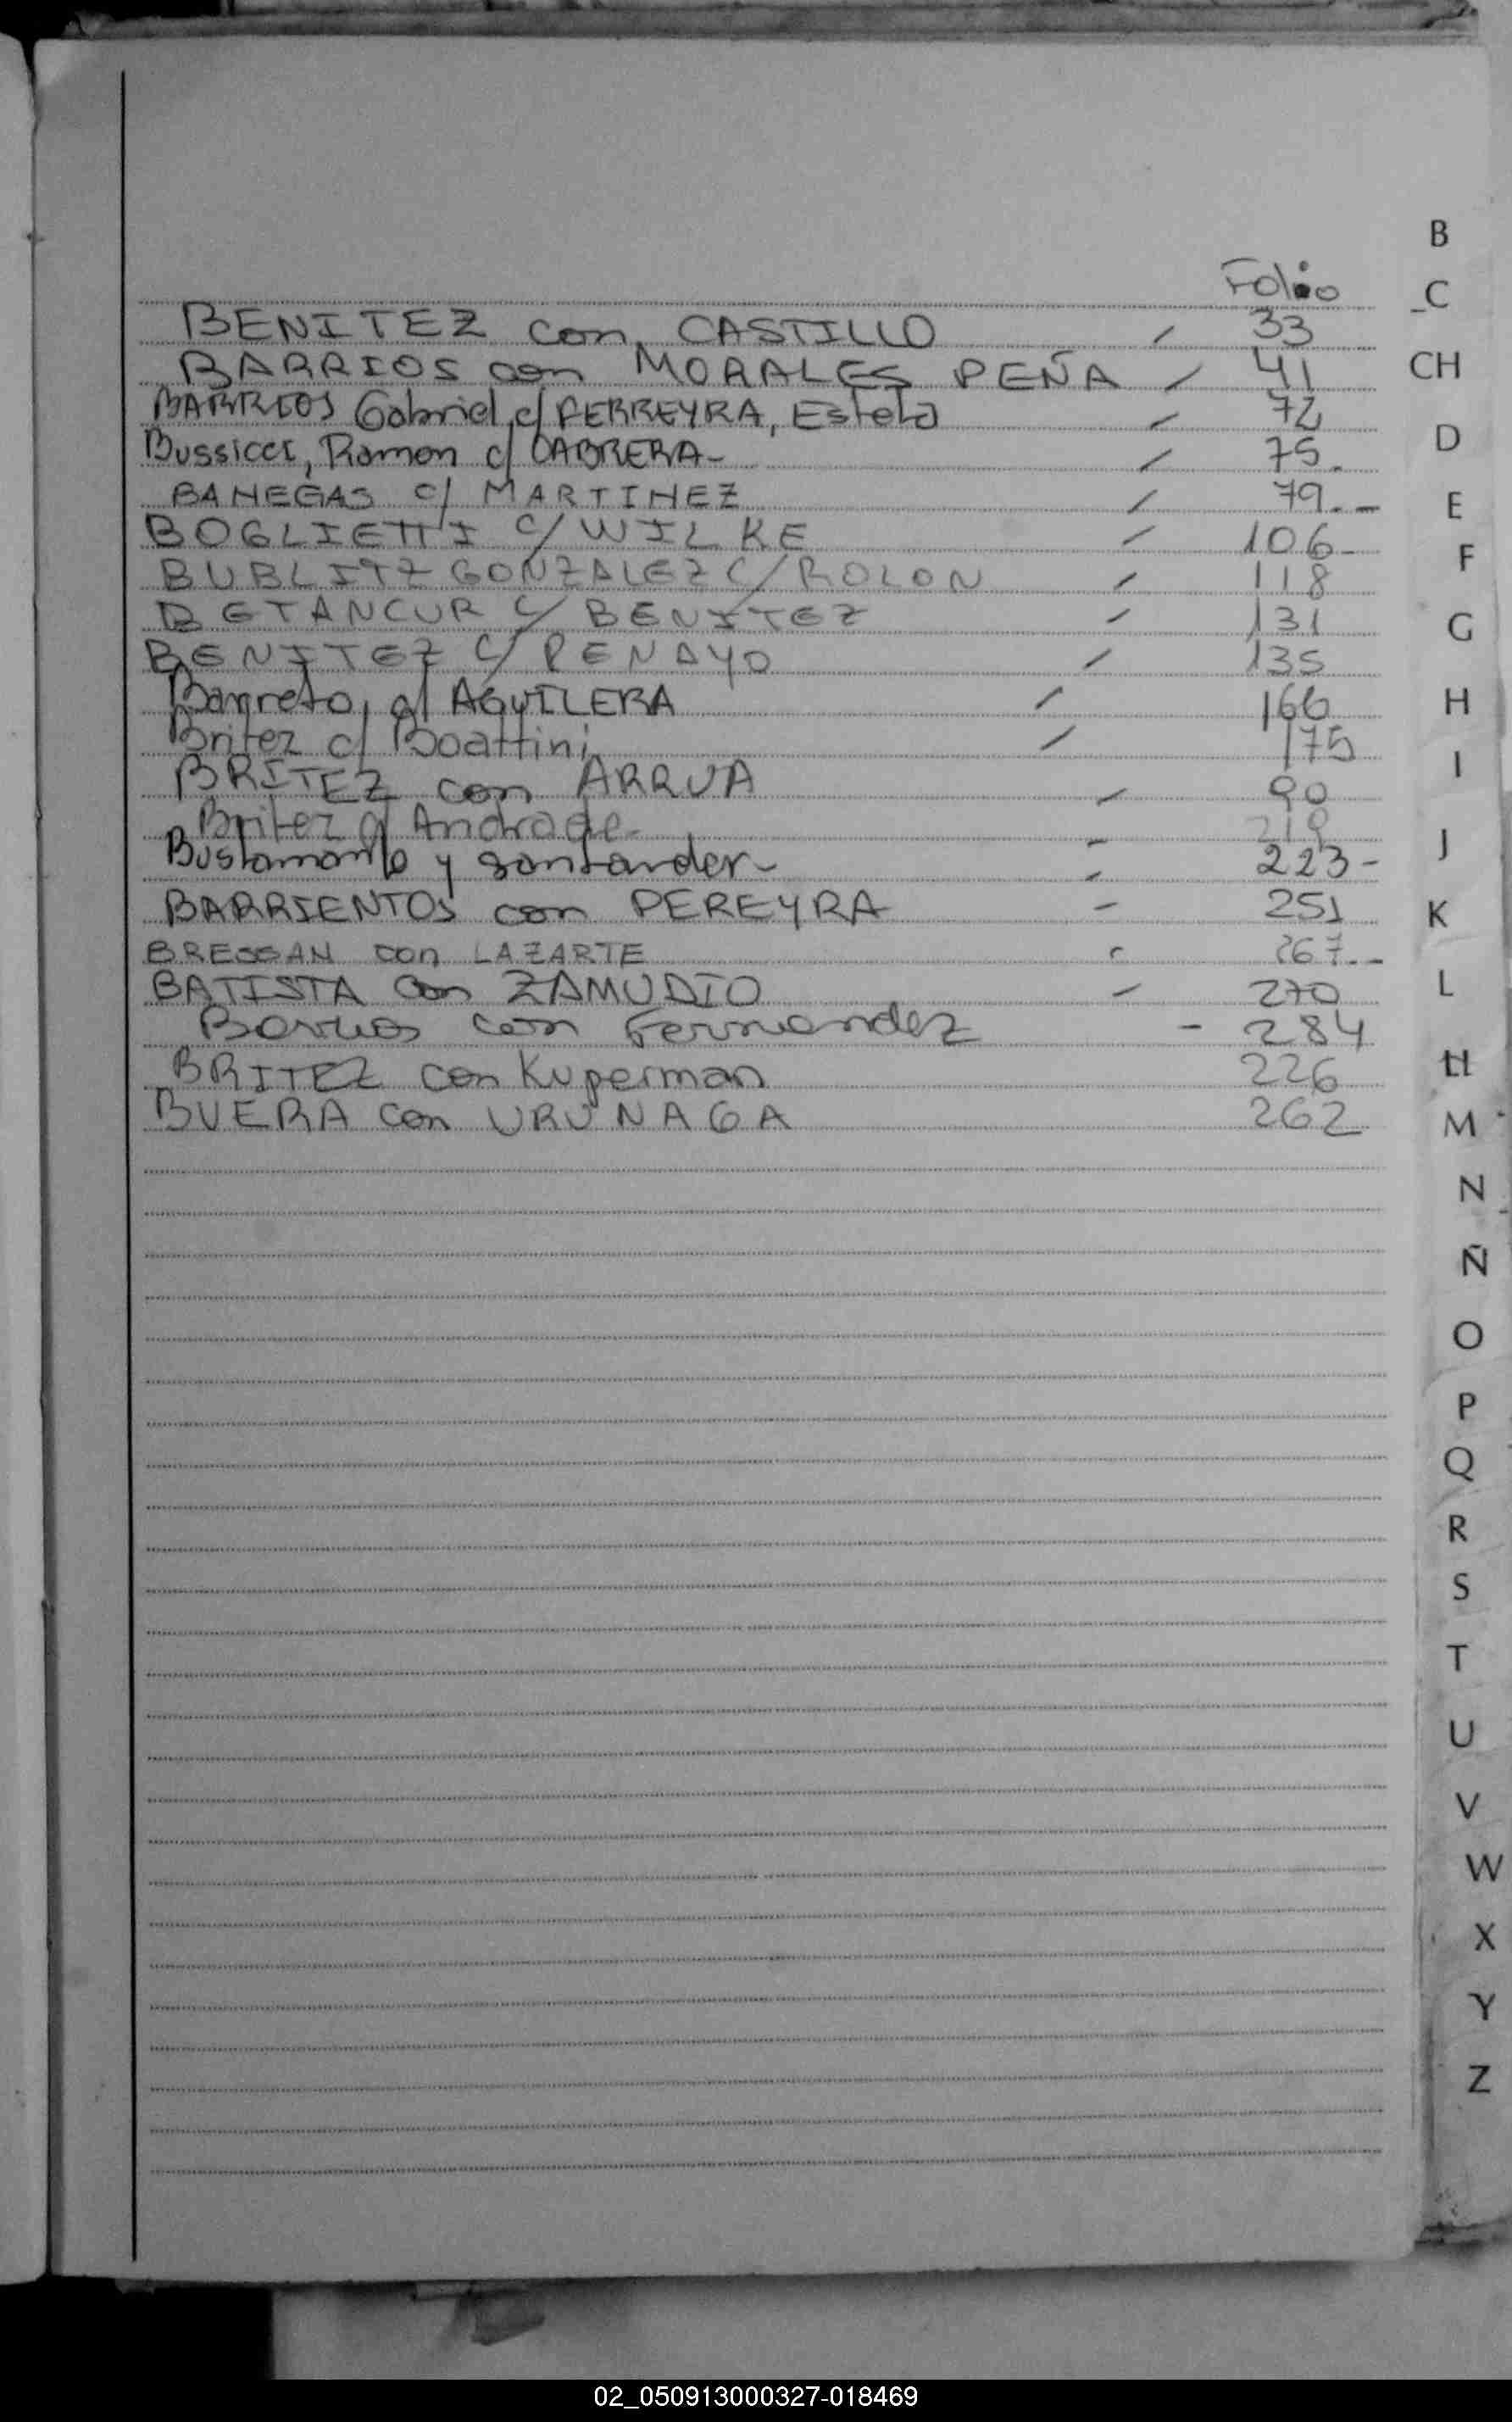 Folio
BENITEZ con CASTILLO / 33
BARRIOS con MORALES PEÑA / 41
BARRIOS Gabriel c/ FERREYRA, Estela / 72
Bussicci, Ramon c/ CABRERA- / 75.
BANEGAS c/ MARTINEZ / 79.-
BOGLIETTI c/ WILKE / 106-
BUBLITZ GONZALEZ c/ ROLON / 118
BETANCUR c/ BENITEZ / 131
BENITEZ c/ PENAYO / 135
Barreto, c/ AGUILERA / 166
Britez c/ Boattini / 175
BRITEZ con ARRUA / 90
Britez c/ Andrade- - 219
Bustamante y Santander- - 223-
BARRIENTOS con PEREYRA - 251
BRESSAN con LAZARTE - 267.-
BATISTA con ZAMUDIO - 270
Barrios con Fernandez - 284
BRITEZ con Kuperman 226
BUERA con URUNAGA 262
B
C
CH
D
E
F
G
H
I
J
K
L
LL
M
N
Ñ
O
P
Q
R
S
T
U
V
W
X
Y
Z
02_050913000327-018469